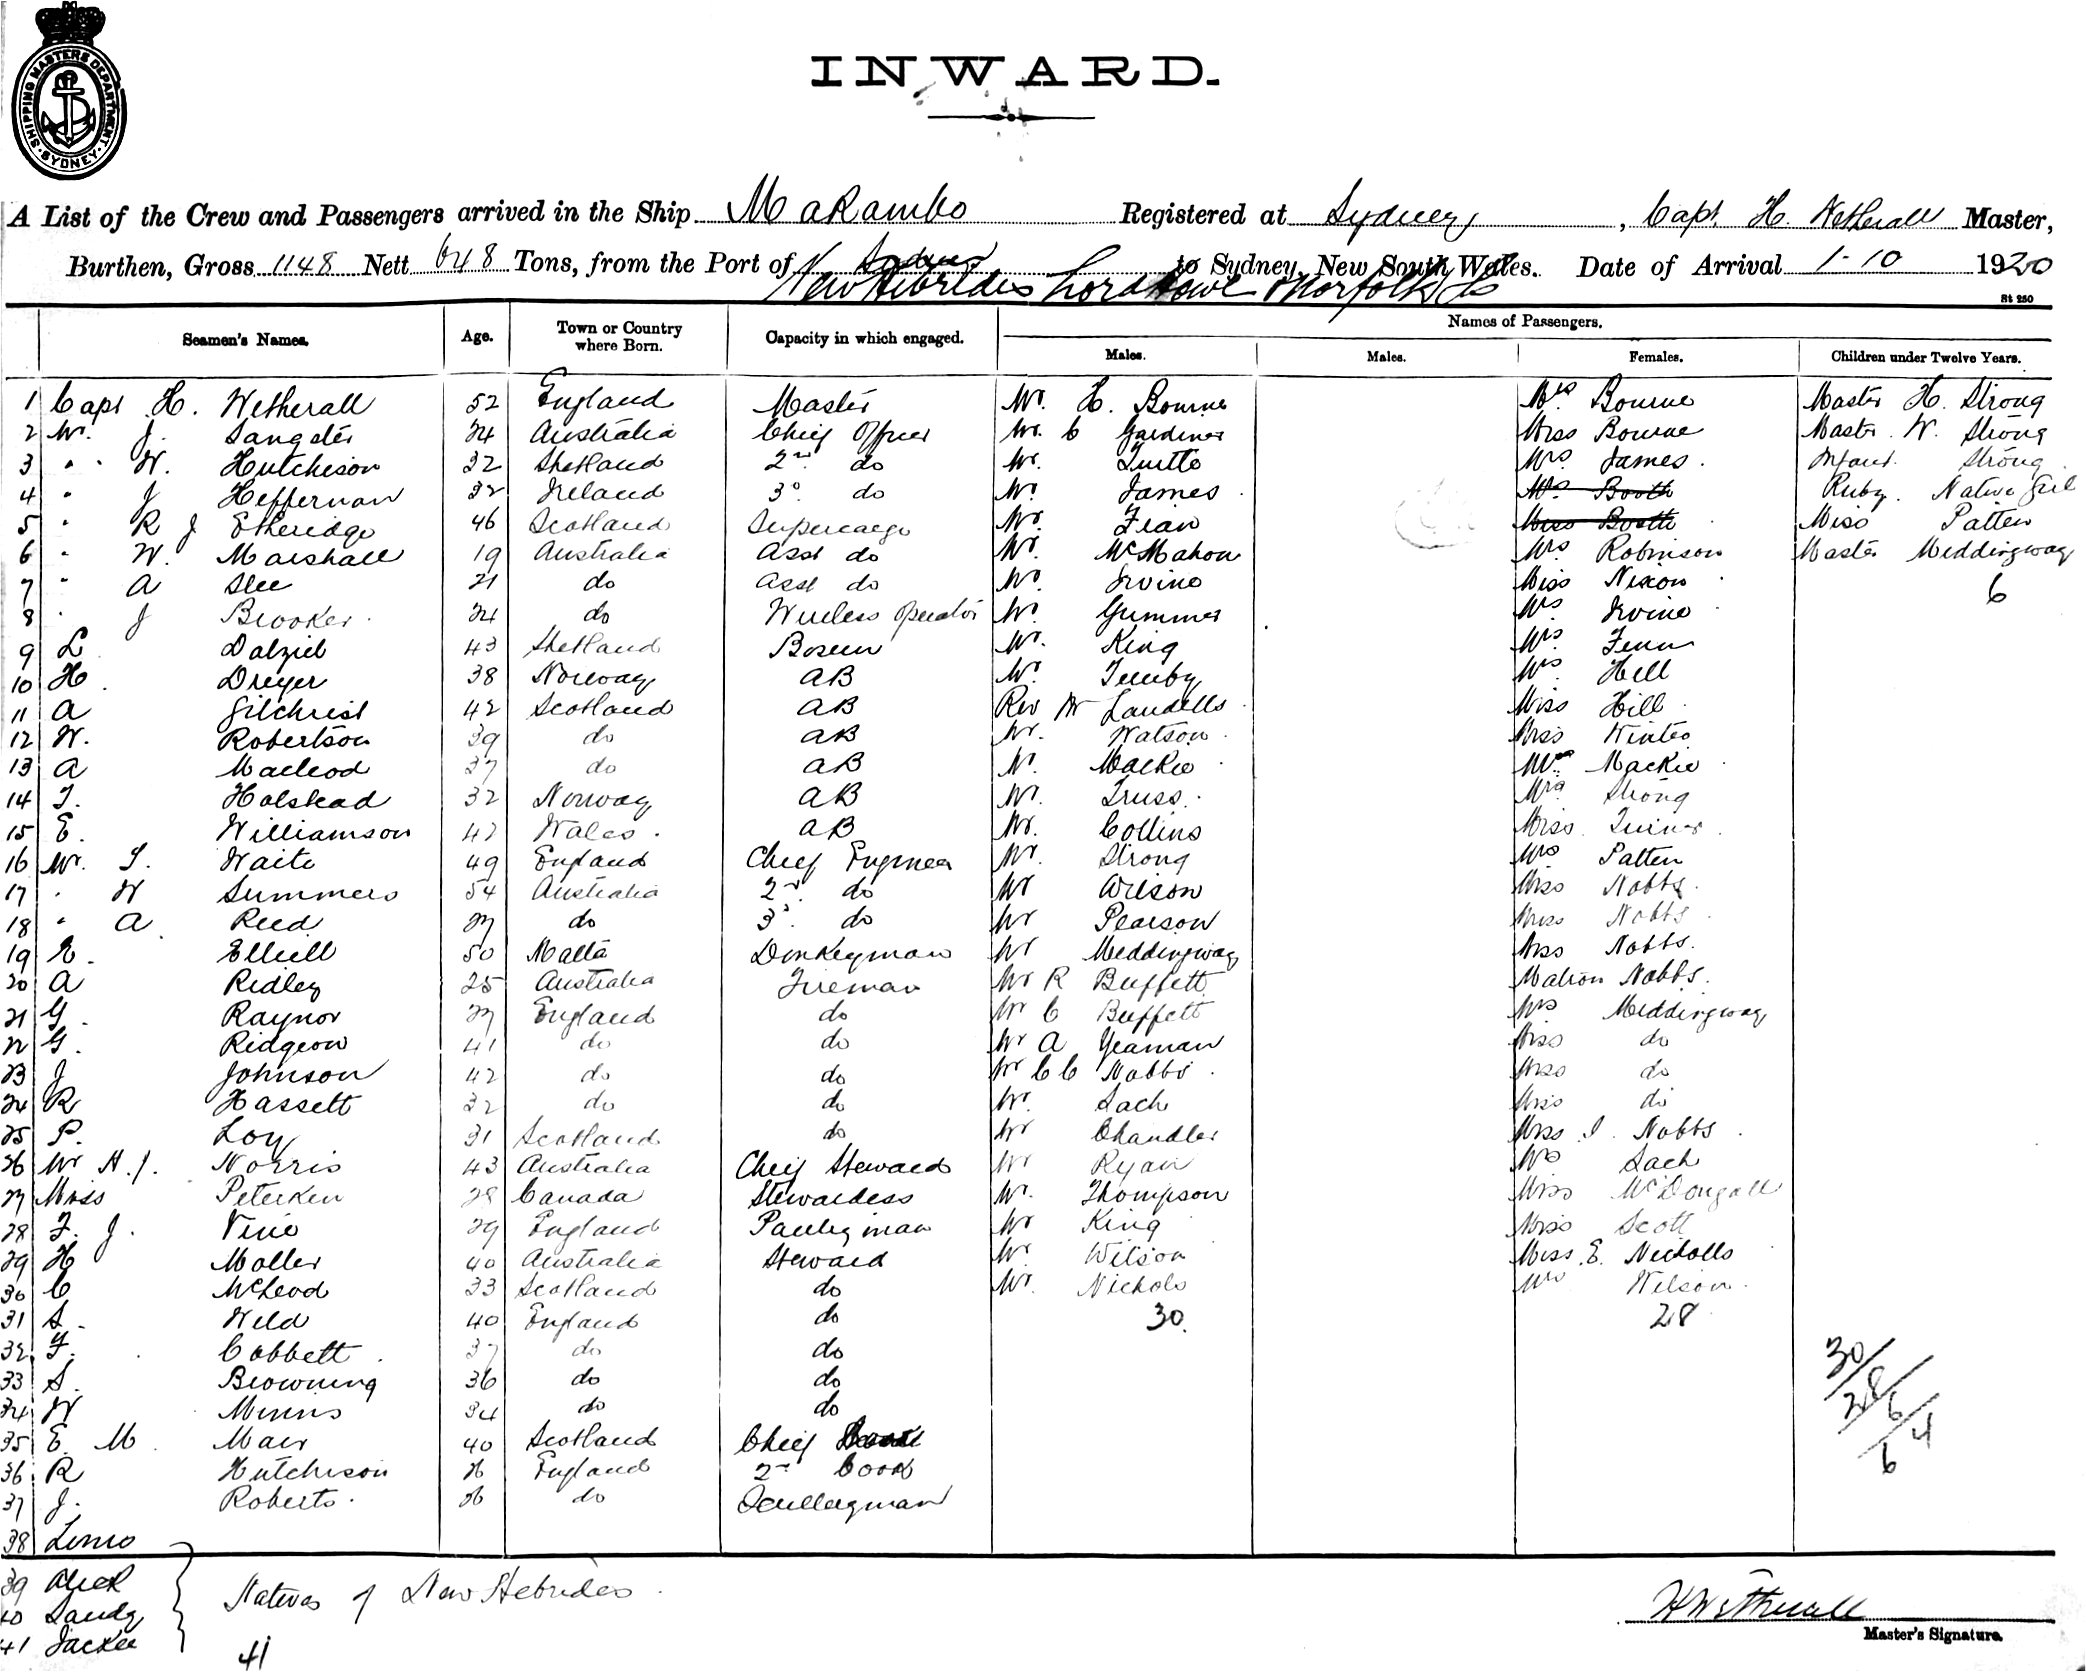 SHIPPING MASTERS DEPARTMENT · SYDNEY ·
INWARD.
A List of the Crew and Passengers arrived in the Ship Makambo Registered at Sydney, Capt H. Wetherall Master,
Burthen, Gross 1148 Nett 648 Tons, from the Port of Sydney to Sydney, New South Wales. Date of Arrival 1-10 1920
New Hebrides Lord Howe Norfolk Is
St 250
Seamen's Names. Age. Town or Country where Born. Capacity in which engaged. Names of Passengers.
Males. Males. Females. Children under Twelve Years.
1 Capt H. Wetherall 52 England Master Mr. H. Bourne Mrs Bourne Master H. Strong
2 Mr. J. Sangster 34 Australia Chief Officer Mr. C Gardiner Miss Bourne Master W. Strong
3 " " W. Hutchison 32 Shetland 2nd do Mr. Tuitto Mrs James Infant Strong
4 " J Heffernan 32 Ireland 3d do Mr James Mrs Booth Ruby. Native Girl
5 " R J Etheridge 46 Scotland Supercargo Mr. Fian Miss Booth Miss Patten
6 " W. Marshall 19 Australia Asst do Mr. McMahon Mrs Robinson Master Meddingway
7 " A Slee 21 do Asst do Mr Irvine Miss Nixon 6
8 " J Brooker 24 do Wireless Operator Mr. Gummer Mrs Irvine
9 L Dalziel 43 Shetland Bosun Mr. King Mrs Fenn
10 H. Dreyer 38 Norway AB Mr Mrs Hill
11 A Gilchrist 42 Scotland AB Rev Mr Landells Miss Hill
12 W. Robertson 39 do AB Mr. Watson Miss Winter
13 A Macleod 37 do AB Mr. Mackie Mrs Mackie
14 T. Halstead 32 Norway AB Mr. Truss Mrs Strong
15 E. Williamson 47 Wales AB Mr. Collins Miss Turner
16 Mr. T. Waite 49 England Chief Engineer Mr. Strong Mrs Patten
17 " W Summers 54 Australia 2nd do Mr Wilson Miss Nobbs
18 " A Reed 27 do 3d do Mr Pearson Miss Nobbs
19 E. Elliell 50 Malta Donkeyman Mr Meddingway Miss Nobbs
20 A Ridley 25 Australia Fireman Mr R Buffett Matron Nobbs
21 G. Raynor 27 England do Mr C Buffett Mrs Meddingway
22 G. Ridgeon 41 do do Mr A Yeaman Miss do
23 J Johnson 42 do do Mr C C Nobbs Miss do
24 R Hassett 32 do do Mr. Sach Miss do
25 P. Loy 31 Scotland do Mr Chandler Miss I. Nobbs
26 Mr H. J. Norris 43 Australia Cheif Steward Mr Ryan Mrs Sach
27 Miss Peterken 28 Canada Stewardess Mr. Thompson Miss McDongall
28 F. J. Vine 29 England Pantryman Mr King Miss Scott
29 H Moller 40 Australia Steward Mr. Wilson Miss E. Nicholls
30 C McLeod 33 Scotland do Mr. Nichols Mrs Wilson
31 S. Weld 40 England do 30. 28
32 F. Cobbett 37 do do
33 S. Browning 36 do do 30/28/6/4
34 W Minns 34 do do 6
35 E. M Mair 40 Scotland Chief Cook
36 R Hutchison 26 England 2nd Cook
37 J. Roberts 26 do Sculleryman
38 Lomo
39 Alick
40 Sandy Natives of New Hebrides
41 Jackie
41
H Wetherall
Master's Signature.